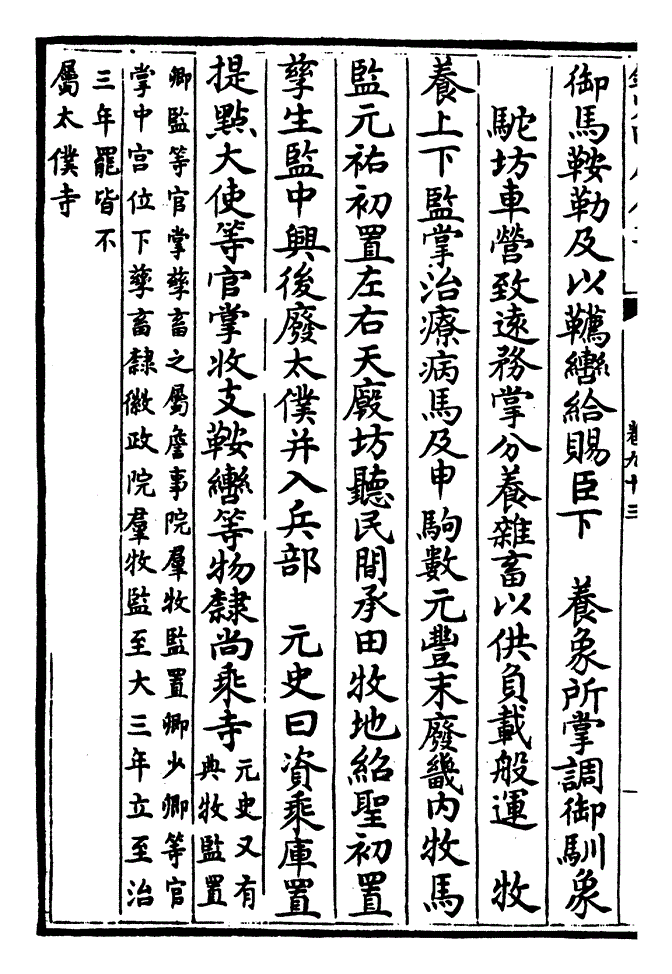 卷九十三
御馬鞍勒及以韉轡給賜臣下　養象所掌調御馴象
駝坊車營致遠務掌分養雜畜以供負載般運　牧
養上下監掌治療病馬及申駒數元豐末廢畿内牧馬
監元祐初置左右天廄坊聽民間承田牧地紹聖初置
孳生監中興後廢太僕并入兵部　元史曰資乘庫置
提點大使等官掌收支鞍轡等物隸尚乘寺
元史又有
典牧監置
卿監等官掌孳畜之屬詹事院羣牧監置卿少卿等官
掌中宫位下孳畜隸徽政院羣牧監至大三年立至治
三年罷皆不
屬太僕寺